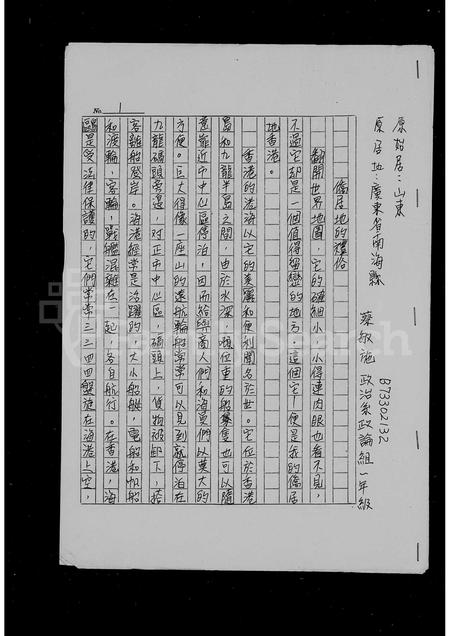 原始居：山東
原居地：廣東省南海縣
蔡敏施 政治系政論組一年級
B73302132
No. 1
僑居地的禮俗
翻開世界地圖，它的確細小，小得連肉眼也看不見，
不過它却是一個值得留戀的地方，這個它—便是我的僑居
地香港。
香港的港海以它的美麗和便利聞名於世。它位於香港
島和九龍半島之間，由於水深，噸位重的船隻也可以隨
意靠近市中心區停泊，因而給與商人們和海員們以莫大的
方便。巨大得像一座山的遠航輪船常常可以見到就停泊在
九龍碼頭旁邊，對正市中心區，碼頭上，貨物被卸下，搭
客離船登岸。海港經常是活躍的，大小船艇，電船和帆船
和渡輪，客輪，戰艦混雜在一起，各自航行。在香港，海
鷗是受法律保護的，它們常常三三四四盤旋在海港上空，